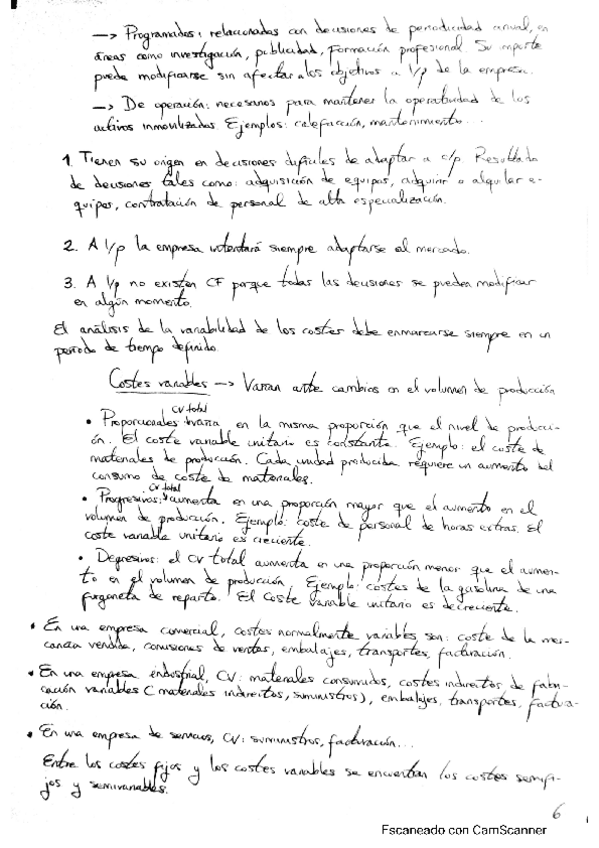 —> Programados: relacionadas con decisiones de periodicidad anual, en
áreas como investigación, publicidad, formación profesional. Su importe
puede modificarse sin afectar a los objetivos a l/p de la empresa.
—> De operación: necesarios para mantener la operatividad de los
activos inmovilizados. Ejemplos: calefacción, mantenimiento...
1. Tienen su origen en decisiones difíciles de adaptar a c/p. Resultado
de decisiones tales como: adquisición de equipos, adquirir o alquilar e-
quipos, contratación de personal de alta especialización.
2. A l/p la empresa intentará siempre adaptarse al mercado.
3. A l/p no existen CF porque todas las decisiones se pueden modificar
en algún momento.
El análisis de la variabilidad de los costes debe enmarcarse siempre en un
período de tiempo definido.
Costes variables —> Varían ante cambios en el volumen de producción
CV total
• Proporcionales: varía en la misma proporción que el nivel de producci-
ón. El coste variable unitario es constante. Ejemplo: el coste de
materiales de producción. Cada unidad producida requiere un aumento del
consumo de coste de materiales.
CV total
• Progresivos: aumenta en una proporción mayor que el aumento en el
volumen de producción. Ejemplo: coste de personal de horas extras. El
coste variable unitario es creciente.
• Degresivos: el CV total aumenta en una proporción menor que el aumen-
to en el volumen de producción. Ejemplo: costes de la gasolina de una
furgoneta de reparto. El coste variable unitario es decreciente.
• En una empresa comercial, costes normalmente variables son: coste de la mer-
cancía vendida, comisiones de ventas, embalajes, transportes, facturación.
• En una empresa industrial, CV: materiales consumidos, costes indirectos de fabri-
cación variables (materiales indirectos, suministros), embalajes, transportes, factura-
ción.
• En una empresa de servicios, CV: suministros, facturación...
Entre los costes fijos y los costes variables se encuentran los costes semifi-
jos y semivariables.
6
Escaneado con CamScanner